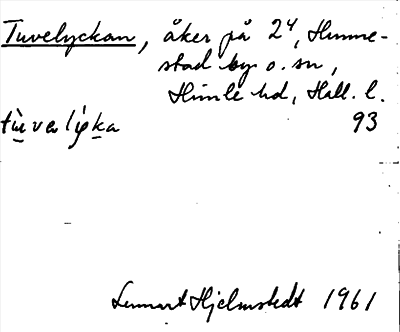 Tuvelyckan, åker på 2⁴, Humme-
stad by o. sn,
Himle hd, Hall. l.
93
Lennart Hjelmstedt 1961